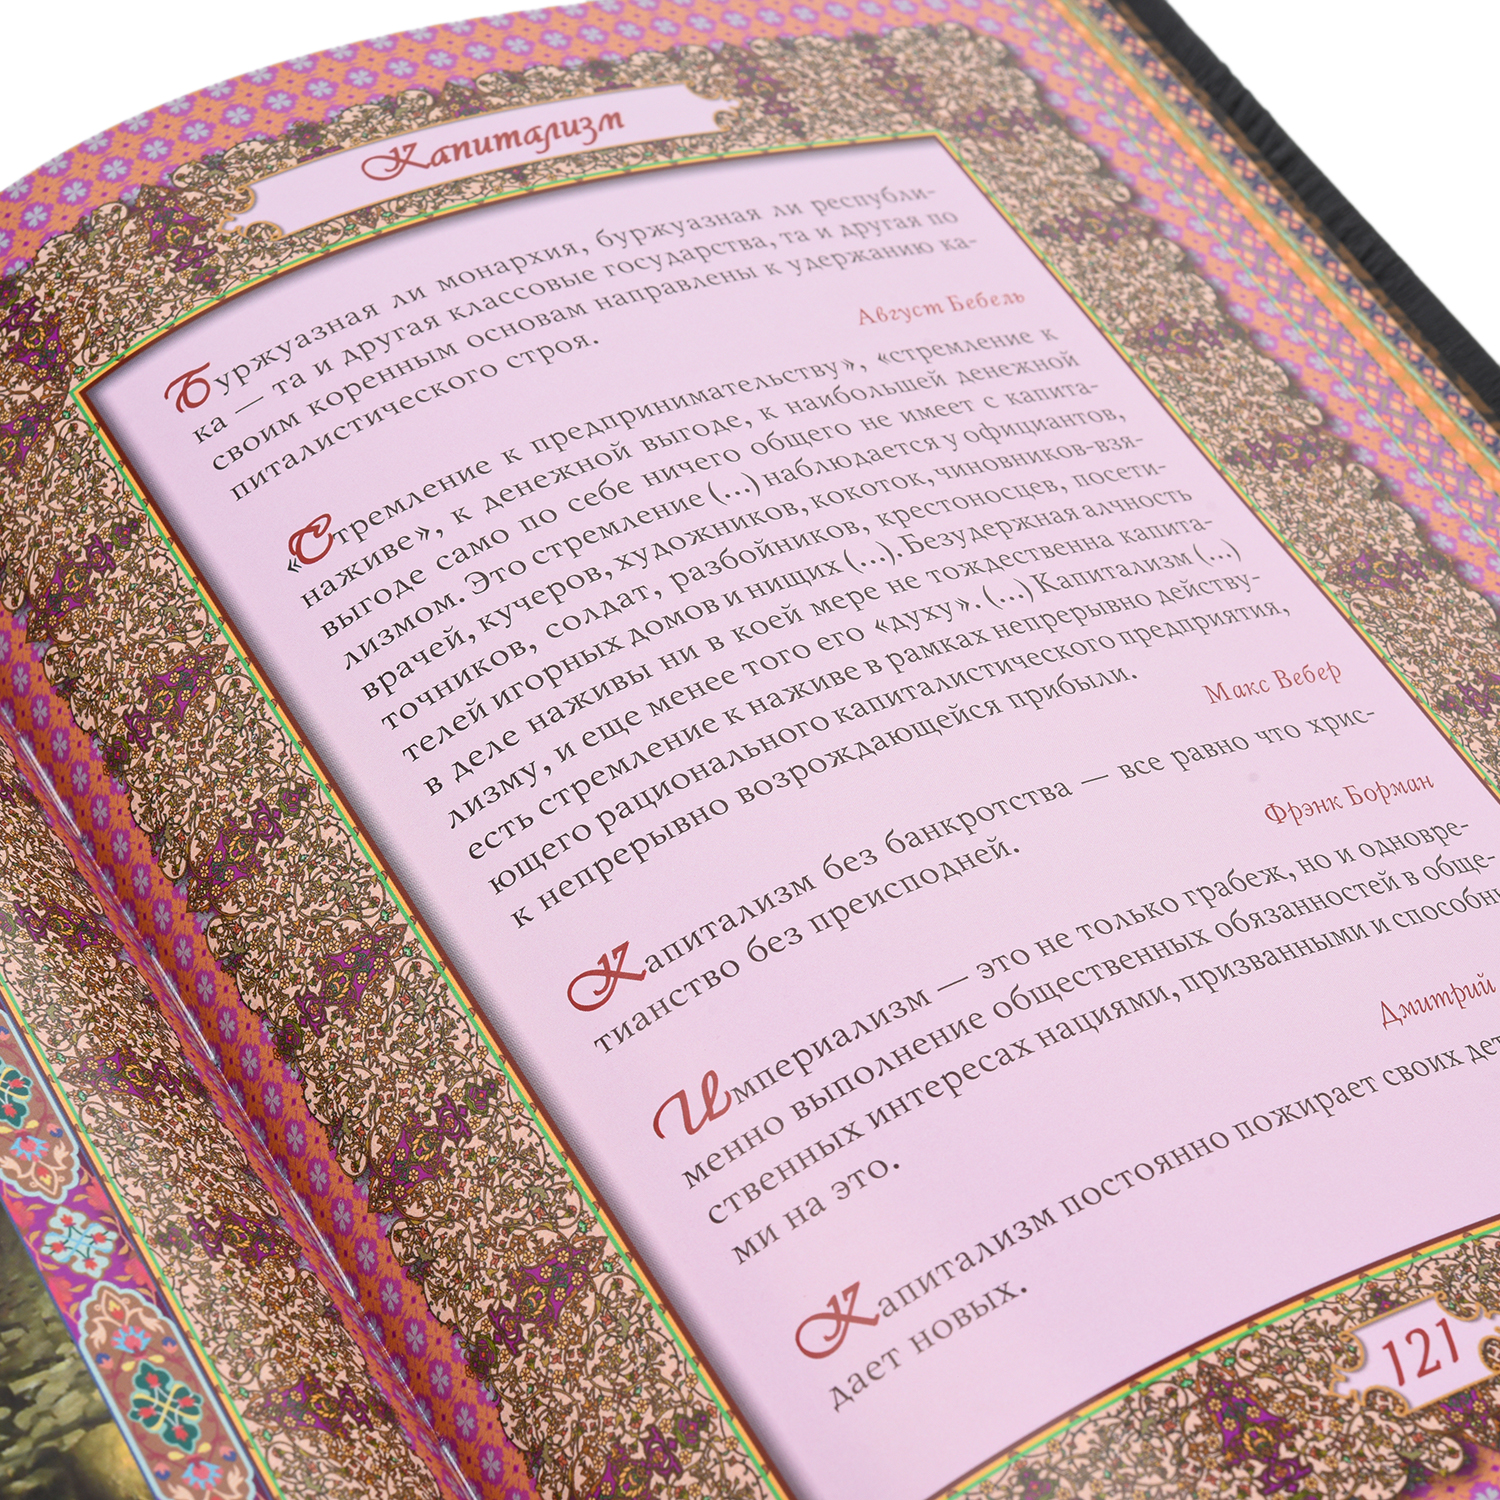 Капитализм
Буржуазная ли монархия, буржуазная ли республи-
ка — та и другая классовые государства, та и другая по
своим коренным основам направлены к удержанию ка-
питалистического строя.
Август Бебель
«Стремление к предпринимательству», «стремление к
наживе», к денежной выгоде, к наибольшей денежной
выгоде само по себе ничего общего не имеет с капита-
лизмом. Это стремление (...) наблюдается у официантов,
врачей, кучеров, художников, кокоток, чиновников-взя-
точников, солдат, разбойников, крестоносцев, посети-
телей игорных домов и нищих (...). Безудержная алчность
в деле наживы ни в коей мере не тождественна капита-
лизму, и еще менее того его «духу». (...) Капитализм (...)
есть стремление к наживе в рамках непрерывно действу-
ющего рационального капиталистического предприятия,
к непрерывно возрождающейся прибыли.
Макс Вебер
Капитализм без банкротства — все равно что хрис-
тианство без преисподней.
Фрэнк Борман
Империализм — это не только грабеж, но и одновре-
менно выполнение общественных обязанностей в обще-
ственных интересах нациями, призванными и
ми на это.
Дмитрий
Капитализм постоянно пожирает своих
дает новых.
121